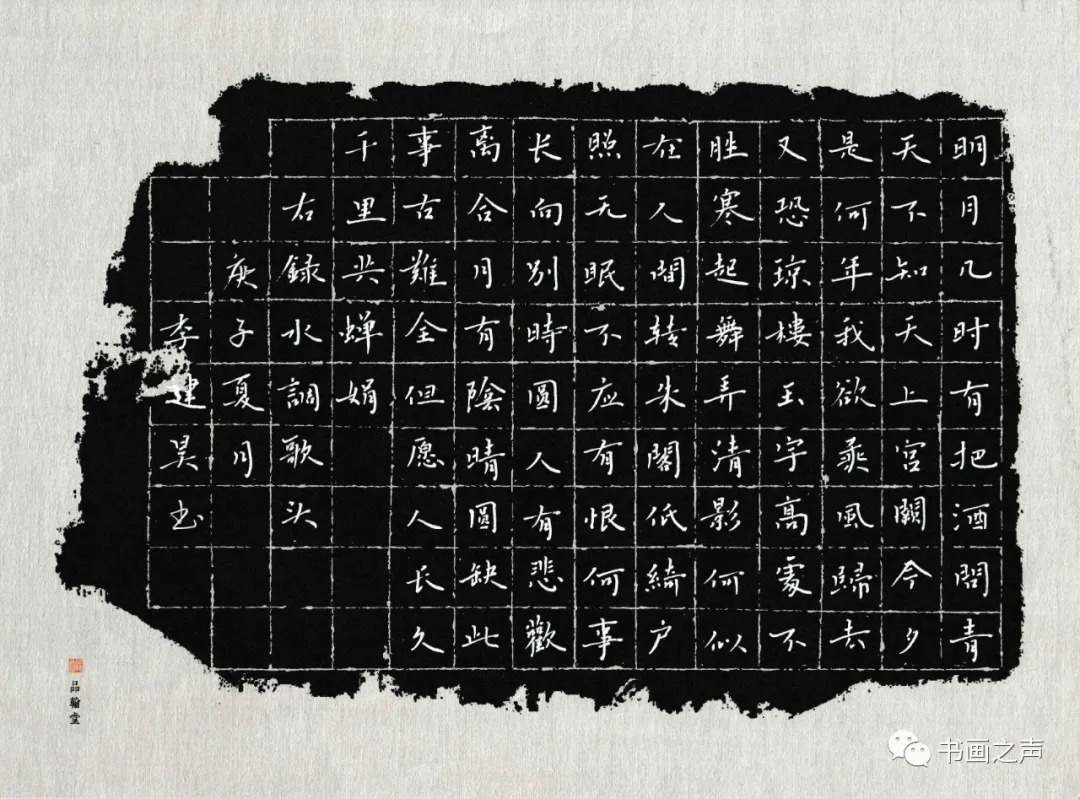 明月几时有把酒问青
天不知天上宫闕今夕
是何年我欲乘風歸去
又恐琼樓玉宇高處不
胜寒起舞弄清影何似
在人間转朱閣低綺户
照无眠不应有恨何事
长向别時圓人有悲歡
离合月有陰晴圆缺此
事古難全但愿人长久
千里共蝉娟
右録水調歌头
庚子夏月
李建昊书
品翰堂
书画之声